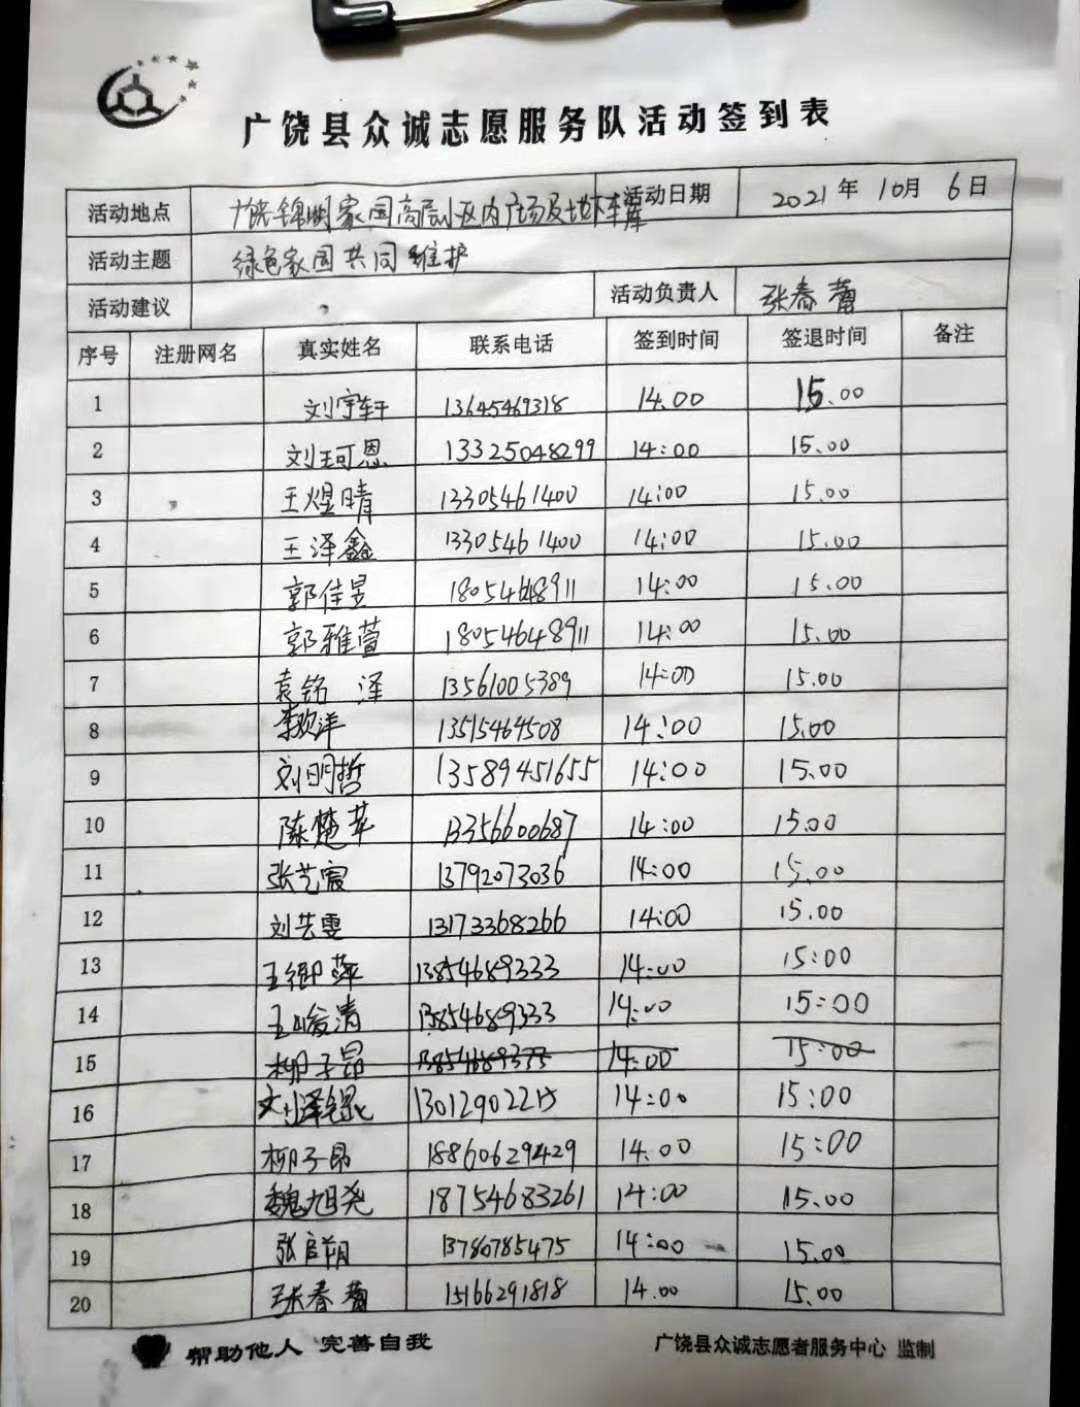 广饶县众诚志愿服务队活动签到表
活动地点 广饶锦明家园高层小区内广场及地下车库 活动日期 2021年10月6日
活动主题 绿色家园共同维护
活动建议 活动负责人 张春蕾
序号 注册网名 真实姓名 联系电话 签到时间 签退时间 备注
1 刘宇轩 13645469318 14.00 15.00
2 刘珂恩 13325048299 14:00 15.00
3 王煜晴 13305461400 14:00 15.00
4 王泽鑫 13305461400 14:00 15.00
5 郭佳昱 18054648911 14:00 15.00
6 郭雅萱 18054648911 14:00 15.00
7 袁铭泽 13561005389 14:00 15.00
8 李欣洋 13515464508 14:00 15.00
9 刘明哲 13589451655 14:00 15.00
10 陈楚苹 13356600687 14:00 15.00
11 张艺霞 13792073036 14:00 15.00
12 刘芸雯 13173368266 14:00 15.00
13 王御萍 13854689333 14:00 15:00
14 王峻清 13854689333 14:00 15:00
15 柳子昂 14:00 15:00
16 刘泽锟 14:00 15:00
17 柳子昂 18860629429 14.00 15:00
18 魏旭尧 18754683261 14:00 15.00
19 13780785475 14:00 15.00
20 张春蕾 15166291818 14.00 15.00
帮助他人 完善自我 广饶县众诚志愿者服务中心 监制